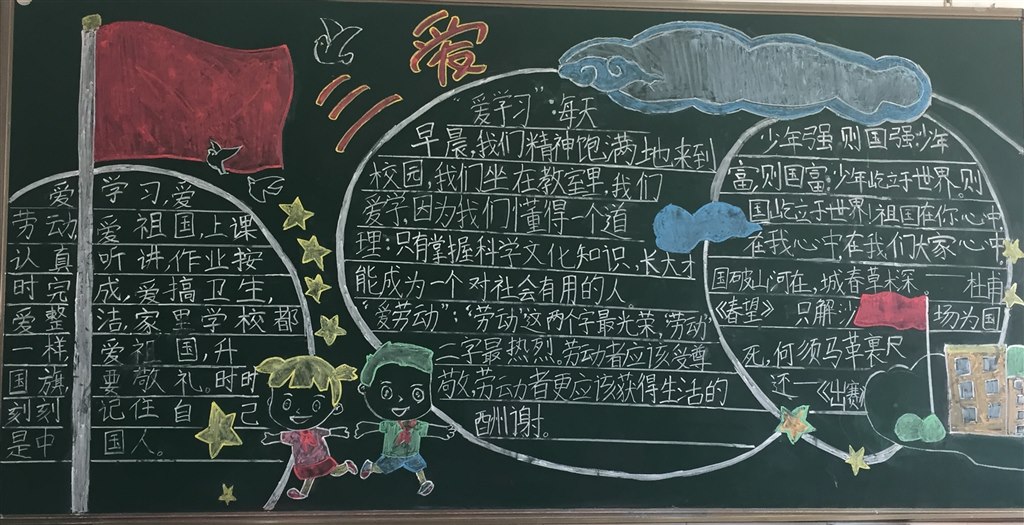 三爱
爱学习,爱
劳动爱祖国,上课
认真听讲,作业按
时完成,爱搞卫生,
爱整洁,家里学校都
一样爱祖国,升
国旗,要敬礼。时时
刻刻记住自己
是中国人。
“爱学习”:每天
早晨,我们精神饱满地来到
校园,我们坐在教室里,我们
爱学,因为我们懂得一个道
理:只有掌握科学文化知识,长大才
能成为一个对社会有用的人
“爱劳动”:“劳动”这两个字最光荣,劳动
二字最热烈.劳动者应该受尊
敬,劳动者更应该获得生活的
酬谢。
少年强,则国强;少年
富,则国富;少年屹立于世界,则
国屹立于世界!祖国在你心中
在我心中,在我们大家心中
国破山河在,城春草木深——杜甫
《春望》 只解沙场为国
死,何须马革裹尸
还—《出塞